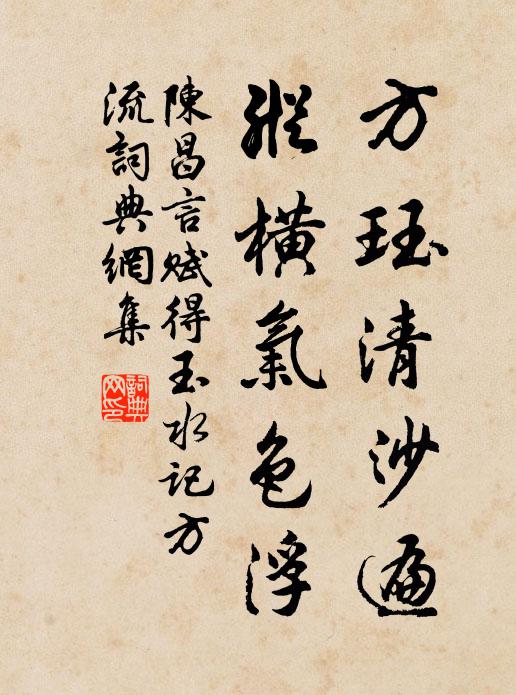 方珏清沙遍
縱橫氣色浮
陳昌言賦得玉水記方
流詞典網集
詞典
网印